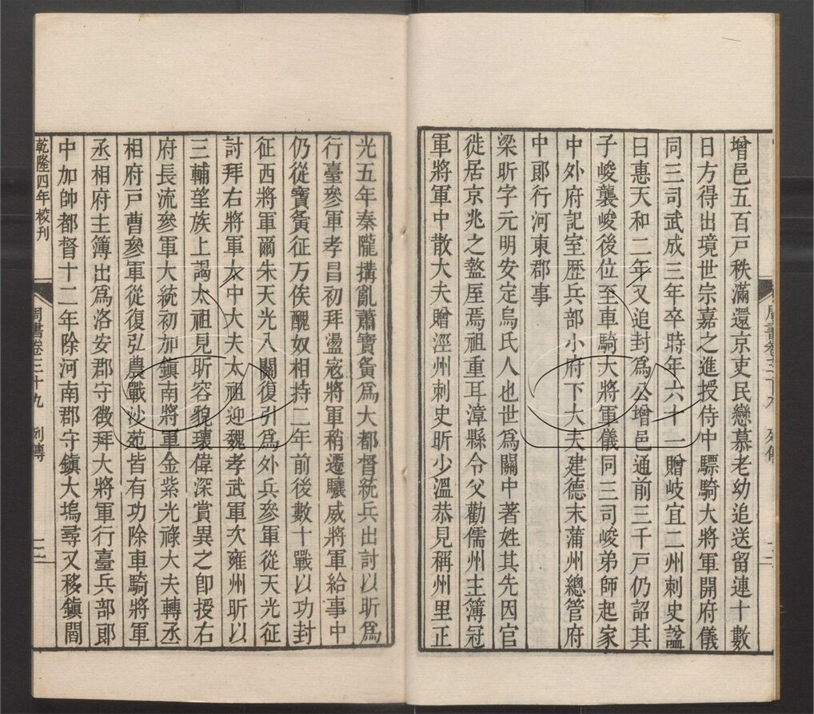 增邑五百戸秩滿還京吏民戀慕老幼追送留連十數
日方得出境世宗嘉之進授侍中驃騎大將軍開府儀
同三司武成三年卒時年六十一贈岐宜二州刺史謚
日惠天和二年又追封爲公增邑通前三千戸仍詔其
子峻襲峻後位至車騎大將軍儀同三司峻弟師起家
中外府記室歴兵部小府下大夫建德末蒲州總管府
中郞行河東郡事
梁昕字元明安定烏氏人也世爲關中著姓其先因官
徙居京兆之盩厔焉祖重耳漳縣令父勸儒州主簿冠
軍將軍中散大夫贈涇州刺史昕少溫恭見稱州里正
周書卷三十九 列傳 二
光五年秦隴搆亂蕭寶夤爲大都督統兵出討以昕爲
行臺參軍孝昌初拜盪寇將軍稍遷驤威將軍給事中
仍從寶夤征万俟醜奴相持二年前後數十戰以功封
征西將軍爾朱天光入關復引爲外兵參軍從天光征
討拜右將軍太中大夫太祖迎魏孝武軍次雍州昕以
三輔望族上謁太祖見昕容貌瓌偉深賞異之卽授右
府長流參軍大統初加鎮南將軍金紫光祿大夫轉丞
相府戸曹參軍從復弘農戰沙苑皆有功除車騎將軍
丞相府主簿出爲洛安郡守徵拜大將軍行臺兵部郞
中加帥都督十二年除河南郡守鎮大塢尋又移鎮閻
乾隆四年校刊
周書卷三十九 列傳 二